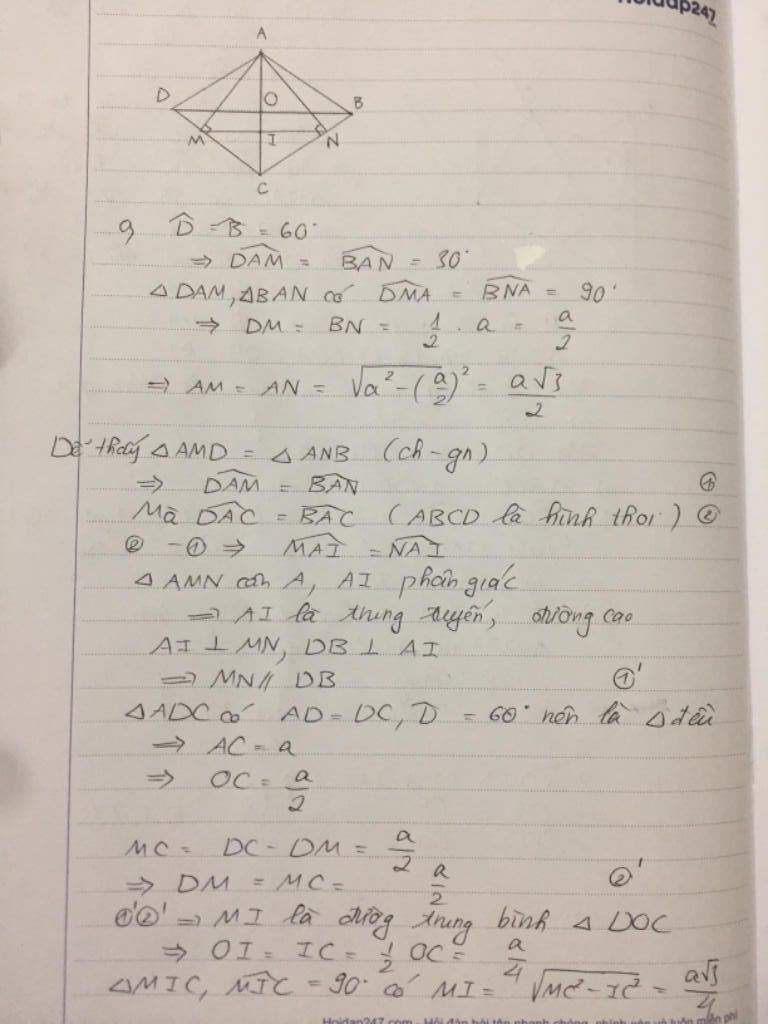 Hoidap247
A
D
O
B
M
I
N
C
a, D̂ = B̂ = 60°
⇒ DAM̂ = BAN̂ = 30°
△DAM, △BAN có DMÂ = BNÂ = 90°
⇒ DM = BN = 1/2 . a = a/2
⇒ AM = AN = √a² - (a/2)² = a√3/2
Dễ thấy △AMD = △ANB (ch - gn)
⇒ DAM̂ = BAN̂ ①
Mà DAĈ = BAĈ (ABCD là hình thoi) ②
② - ① ⇒ MAÎ = NAÎ
△AMN cân A, AI phân giác
⇒ AI là trung tuyến, đường cao
AI ⊥ MN, DB ⊥ AI
⇒ MN // DB ①'
△ADC có AD = DC, D̂ = 60° nên là △ đều
⇒ AC = a
⇒ OC = a/2
MC = DC - DM = a/2
⇒ DM = MC = a/2 ②'
①'②' ⇒ MI là đường trung bình △DOC
⇒ OI = IC = 1/2 OC = a/4
△MIC, MIĈ = 90° có MI = √MC² - IC² = a√3/4
Hoidap247.com - Hỏi đáp bài tập nhanh chóng, chính xác và luôn miễn phí